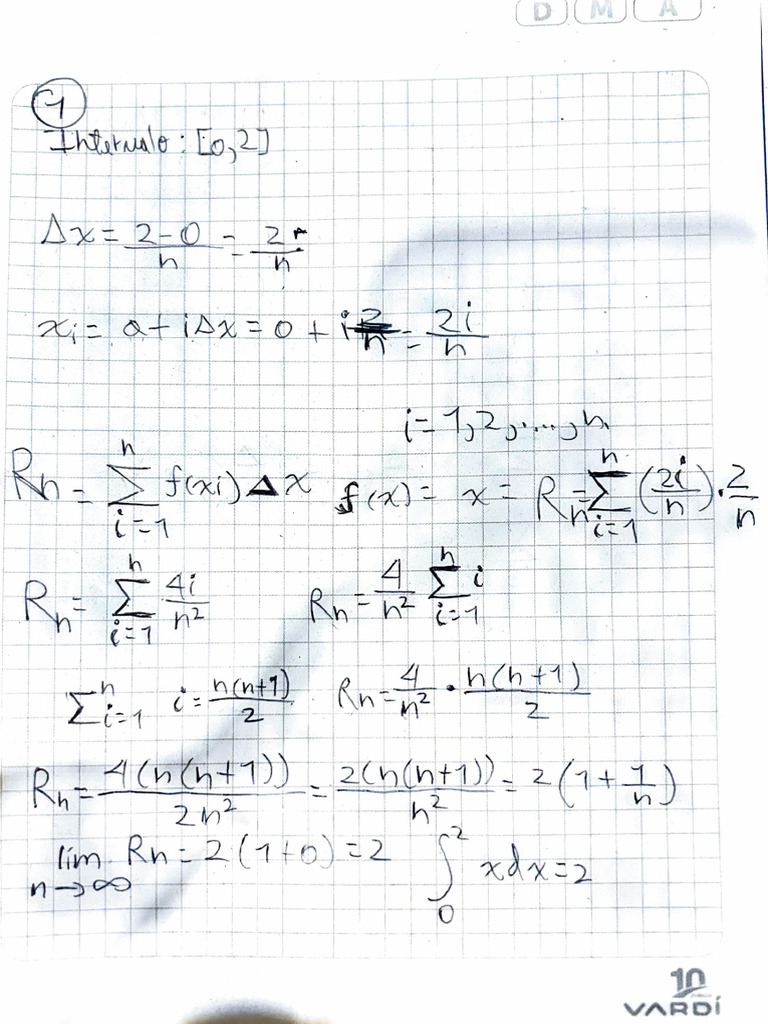 D M A
1
Intervalo: [0,2]
Δx = (2-0)/n = 2/n
xi = a + iΔx = 0 + i 2/n = 2i/n
i = 1,2,....,n.
Rn = Σ_{i=1}^{n} f(xi) Δx   f(x) = x = Rn = Σ_{i=1}^{n} (2i/n) · 2/n
Rn = Σ_{i=1}^{n} 4i/n²   Rn = 4/n² Σ_{i=1}^{n} i
Σ_{i=1}^{n} i = n(n+1)/2   Rn = 4/n² · n(n+1)/2
Rn = 4(n(n+1))/2n² = 2(n(n+1))/n² = 2(1 + 1/n)
lim_{n→∞} Rn = 2(1+0) = 2   ∫_0^2 xdx = 2
10
VARDÍ